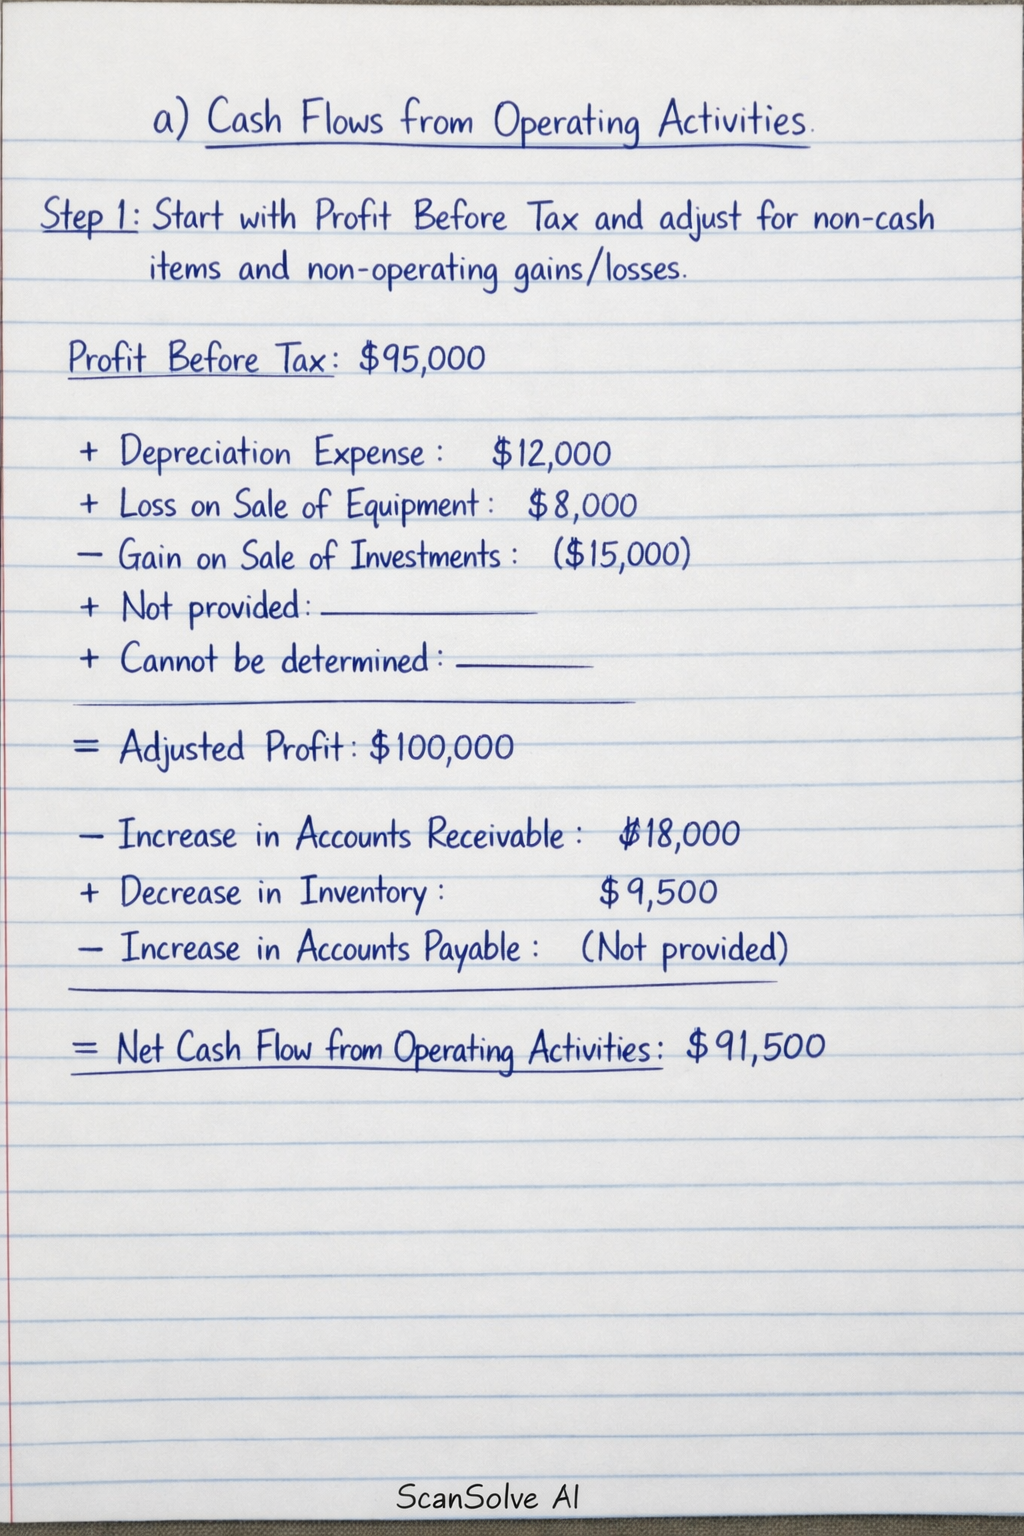 a) Cash Flows from Operating Activities.
Step 1: Start with Profit Before Tax and adjust for non-cash
items and non-operating gains/losses.
Profit Before Tax: $95,000
+ Depreciation Expense: $12,000
+ Loss on Sale of Equipment: $8,000
— Gain on Sale of Investments: ($15,000)
+ Not provided: ______
+ Cannot be determined: ______
= Adjusted Profit: $100,000
— Increase in Accounts Receivable: $18,000
+ Decrease in Inventory: $9,500
— Increase in Accounts Payable: (Not provided)
= Net Cash Flow from Operating Activities: $91,500
ScanSolve AI